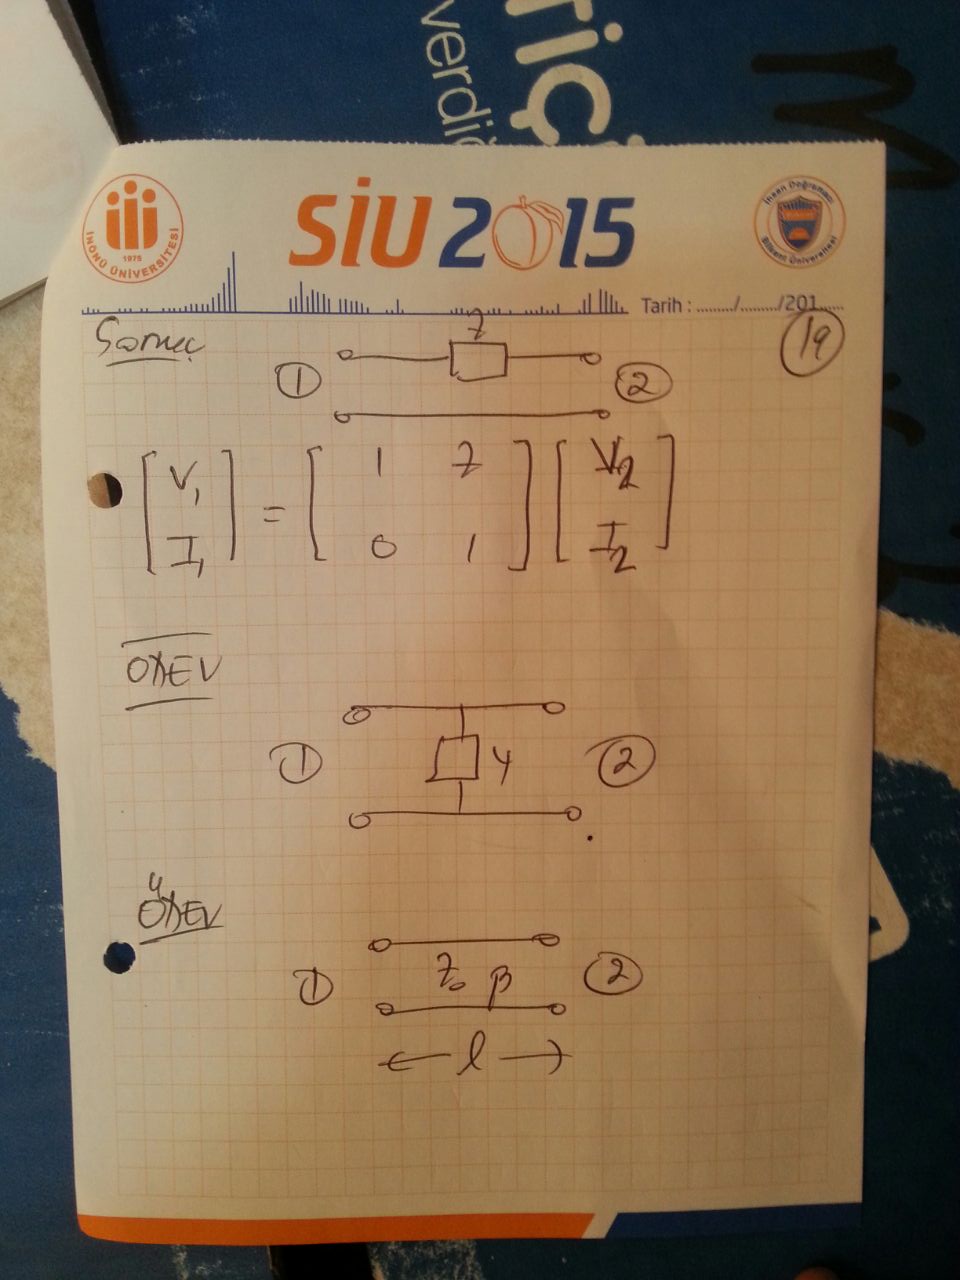 TİÇİ
verdiğ
İNÖNÜ ÜNİVERSİTESİ
1975
SİU 2015
İhsan Doğramacı
Bilkent Üniversitesi
Tarih : ......../......../201......
19
Sonuç
Z
1 2
[V1 I1] = [1 Z 0 1] [V2 I2]
ÖDEV
1 Y 2
ÖDEV
1 Z0 β 2
l